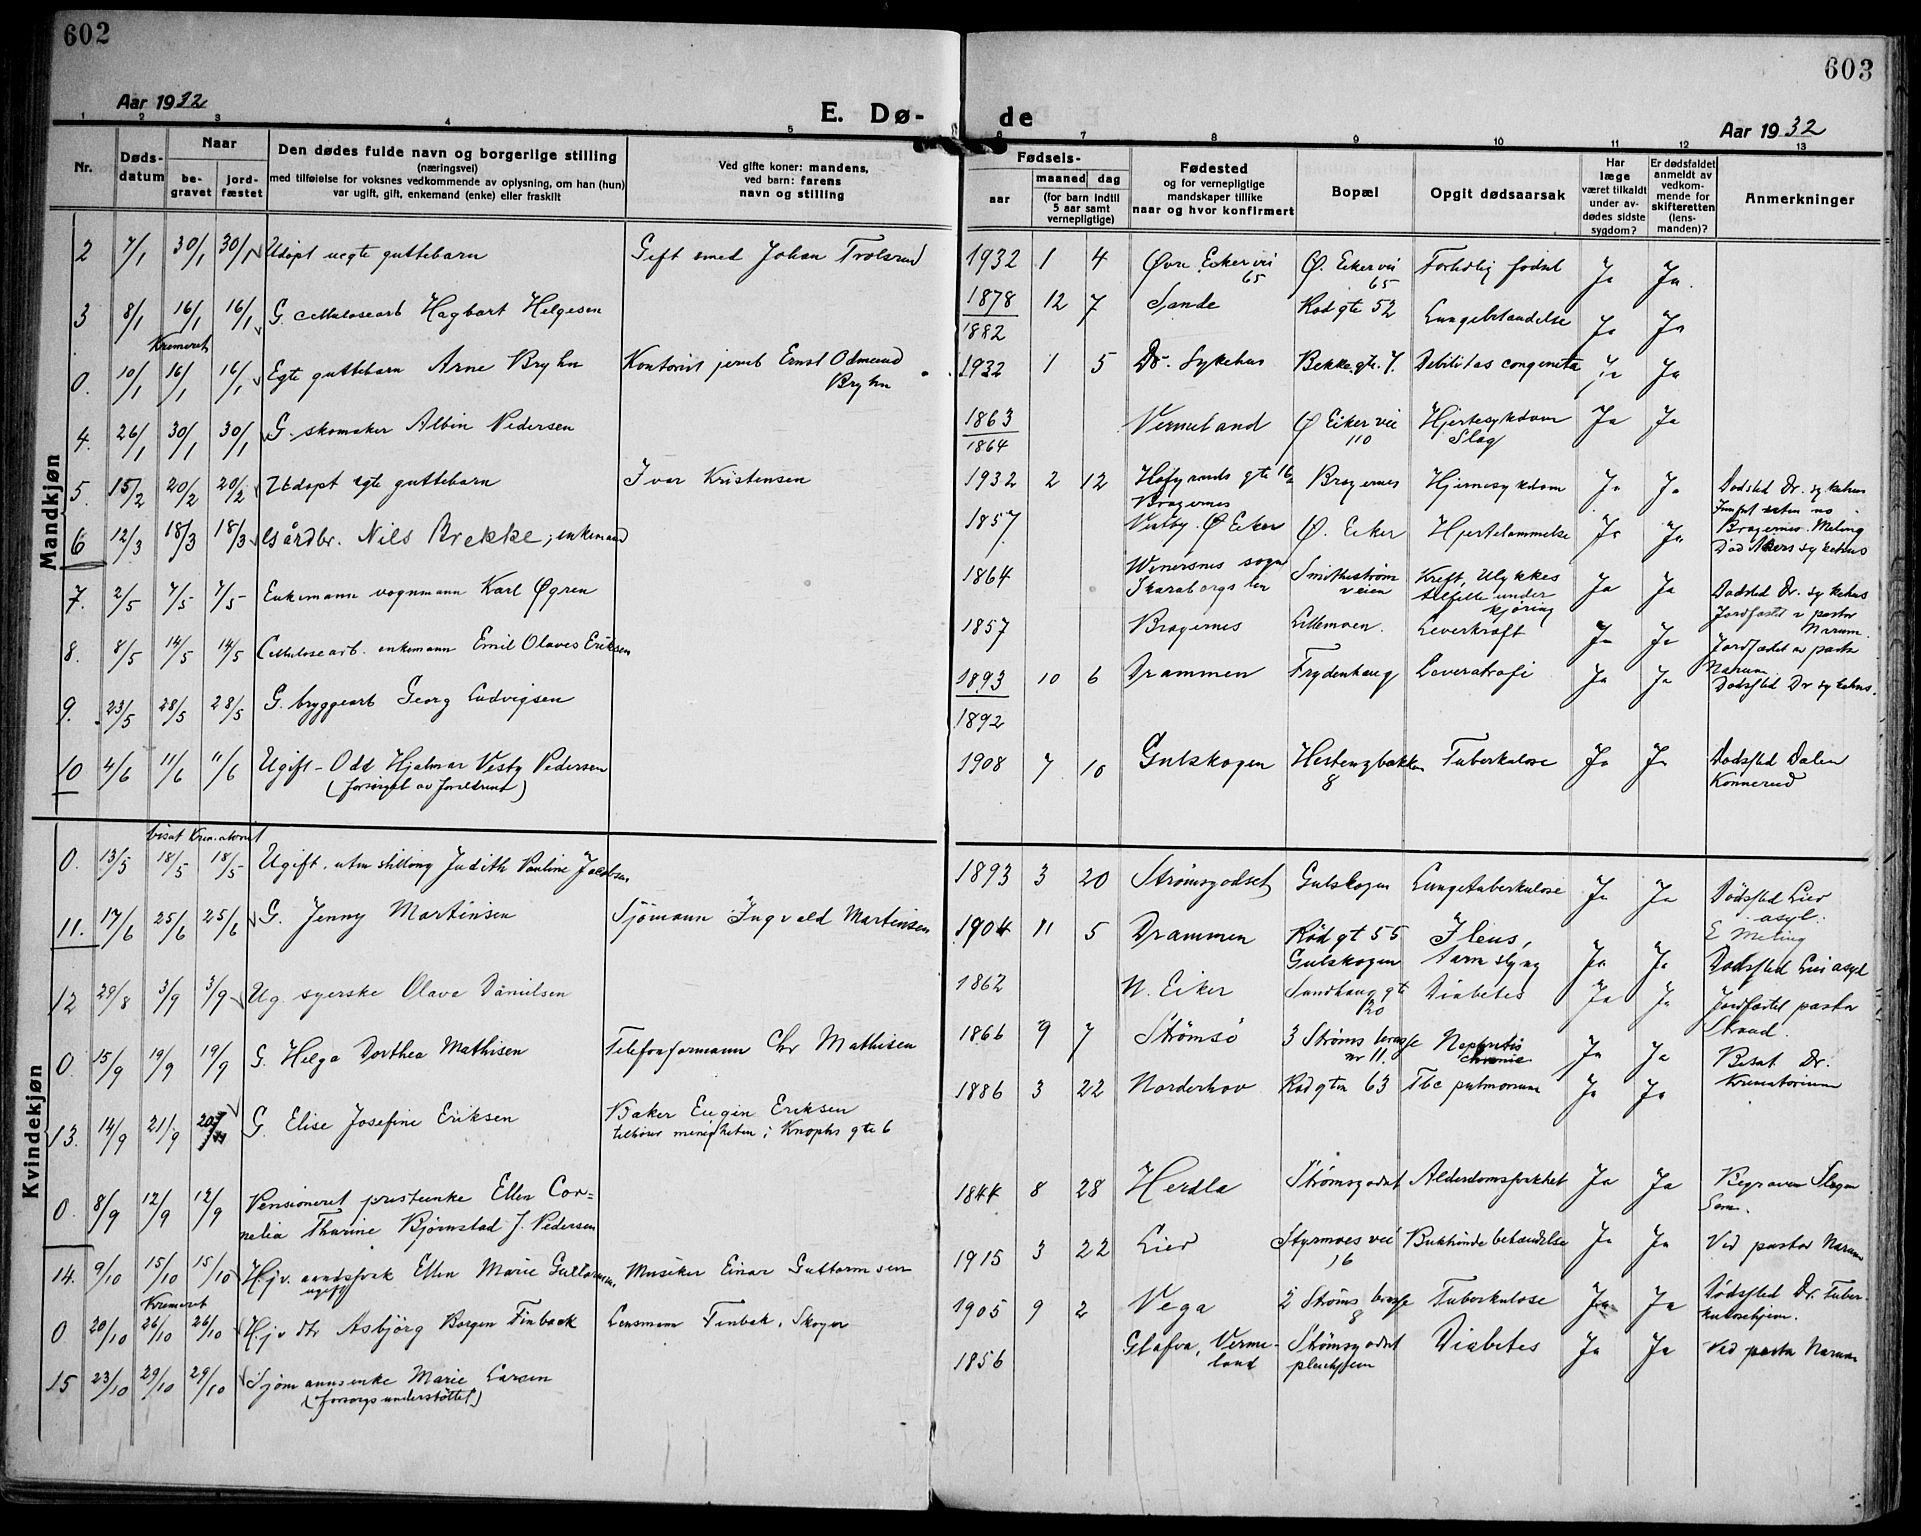 602
603
Aar 1932
E. Dø-
de
Aar 1932
1 2 3 4 5 6 7 8 9 10 11 12 13
Nr.
Døds-
datum
Naar
be-
gravet
jord-
fæstet
Den dødes fulde navn og borgerlige stilling
(næringsvei)
med tilføielse for voksnes vedkommende av oplysning, om han (hun)
var ugift, gift, enkemand (enke) eller fraskilt
Ved gifte koner: mandens,
ved barn: farens
navn og stilling
Fødsels-
aar
maaned
dag
(for barn indtil
5 aar samt
vernepligtige)
Fødested
og for vernepligtige
mandskaper tillike
naar og hvor konfirmert
Bopæl
Opgit dødsaarsak
Har
læge
været tilkaldt
under av-
dødes sidste
sygdom?
Er dødsfaldet
anmeldt av
vedkom-
mende for
skifteretten
(lens-
manden)?
Anmerkninger
Mandkjøn
2 7/1 30/1 30/1 Udøpt uegte guttebarn Gift smed Johan Trolsrud 1932 1 4 Øvre Eikervei 65 Ø. Eikervei 65 Fortidlig født Ja Ja
3 8/1 16/1 16/1 G. cellulosearb Hagbart Helgesen 1878 12 7 Sande Rødgte 52 Lungebetændelse Ja Ja
1882
Kremeret
0. 10/1 16/1 16/1 Egte guttebarn Arne Bryhn Kontorist jernb Ernst Odmund Bryhn 1932 1 5 Dr. Sykehus Bekkegte. 7. Debilitas congenita Ja Ja
4. 26/1 30/1 30/1 G. skomaker Albin Pedersen 1863 Vermeland Ø Eikervei 110 Hjertesykdom Slag Ja Ja
1864
5. 15/2 20/2 20/2 Udøpt egte guttebarn Ivar Kristensen 1932 2 12 Bragernes Bragernes Hjernesykdom Ja Ja Dødsted Dr. sykehus
6 12/3 18/3 18/3 Gårdbr. Nils Brekke, enkemand 1857 Vestby. Ø Eiker Ø. Eiker Hjertelammelse Ja Ja Bragernes. Meling
7. 2/5 7/5 7/5 Enkemann vognmann Karl Øgren 1864 Wenersnes sogn Skaraborgs len Smithestrøm veien Kreft, Ulykkestilfelle under kjøring Ja Ja Dødsted Dr. sykehus
Jordfæstet v pastor Narum.
8. 8/5 14/5 14/5 Cellulosearb. enkemann Emil Olaves Eriksen 1857 Bragernes Lillemoen. Leverkræft Ja Ja Jordfæstet av pastor Narum
9. 23/5 28/5 28/5 G. bryggearb Georg Ludvigsen 1893 10 6 Drammen Frydenhaug Leveratrofi Ja Ja Dødsted Dr sykehus.
1892
10 4/6 11/6 11/6 Ugift - Odd Hjalmar Vestby Pedersen 1908 7 10 Gulskogen Hestengbakken 8 Tuberkulose Ja Ja Dødsted Dalen Konnerud
(forsørget av foreldrene)
Kvindekjøn
bisat Krematoriet
0. 13/5 18/5 18/5 Ugift. uten stilling Judith Pauline Jacobsen 1893 3 20 Strømsgodset Gulskogen Lungetuberkulose Ja Ja Dødsted Lier asyl.
E Meling
11. 17/6 25/6 25/6 G. Jenny Martinsen Sjømann Ingvald Martinsen 1904 11 5 Drammen Rødgt 55 Gulskogen Ileus, Tarmslyng Ja Ja Dødsted Lier asyl
12 29/8 3/9 3/9 Ug. syerske Olava Danielsen 1862 N. Eiker Sundhauggt 20 Diabetes Ja Ja Jordfæstet pastor Strand.
0. 15/9 19/9 19/9 G. Helga Dorthea Mathisen Telefonformann Chr Mathisen 1866 9 7 Strømsø 3 Strøms terasse nr 11. Nephritis chronic Ja Ja Bisat Dr. Krematorium
13. 14/9 21/9 G. Elise Josefine Eriksen Baker Eugin Eriksen 1886 3 22 Norderhov Rødgten 63 Tbc pulmonum Ja Ja
tilhører menigheten; Knophs gte 6
0. 8/9 12/9 12/9 Pensioneret presteenke Ellen Cor=
nelia Thurine Bjørnstad f. Pedersen 1844 8 28 Herdla Strømsgodset Alderdomssvakhet Ja Ja Begraven Slagen Sem.
14. 9/10 15/10 15/10 Hjv. arndsfork Ellen Marie Guttormsen Musiker Einar Guttormsen 1915 3 22 Lier Styrmoes vei 16 Bukhindebetændelse Ja Ja Ved pastor Narum
ugift
Kremeret
0 20/10 26/10 26/10 Hjv dtr Asbjørg Borgen Finbak Lensmann Finbak, Skoger 1905 9 2 Vega 2 Strøms terasse 8 Tuberkulose Ja Ja Dødsted Dr. Tuber-
kulosehjem.
15 23/10 29/10 29/10 Sjømannsenke Marie Larsen 1856 Glafva, Verme-
land Strømsgodset pleiehjem Diabetes Ja Ja Ved pastor Narum
(forsorgsunderstøttet)